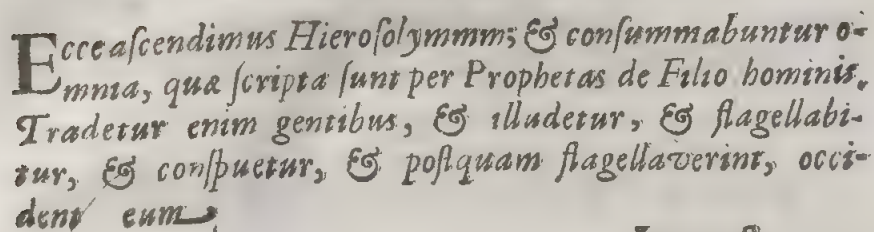 Ecce aſcendimus Hieroſolymmm; & conſummabuntur o-
mnia, quæ ſcripta ſunt per Prophetas de Filio hominis.
Tradetur enim gentibus, & illudetur, & flagellabi-
tur, & conſpuetur, & poſtquam flagellaverint, occi-
dent eum,